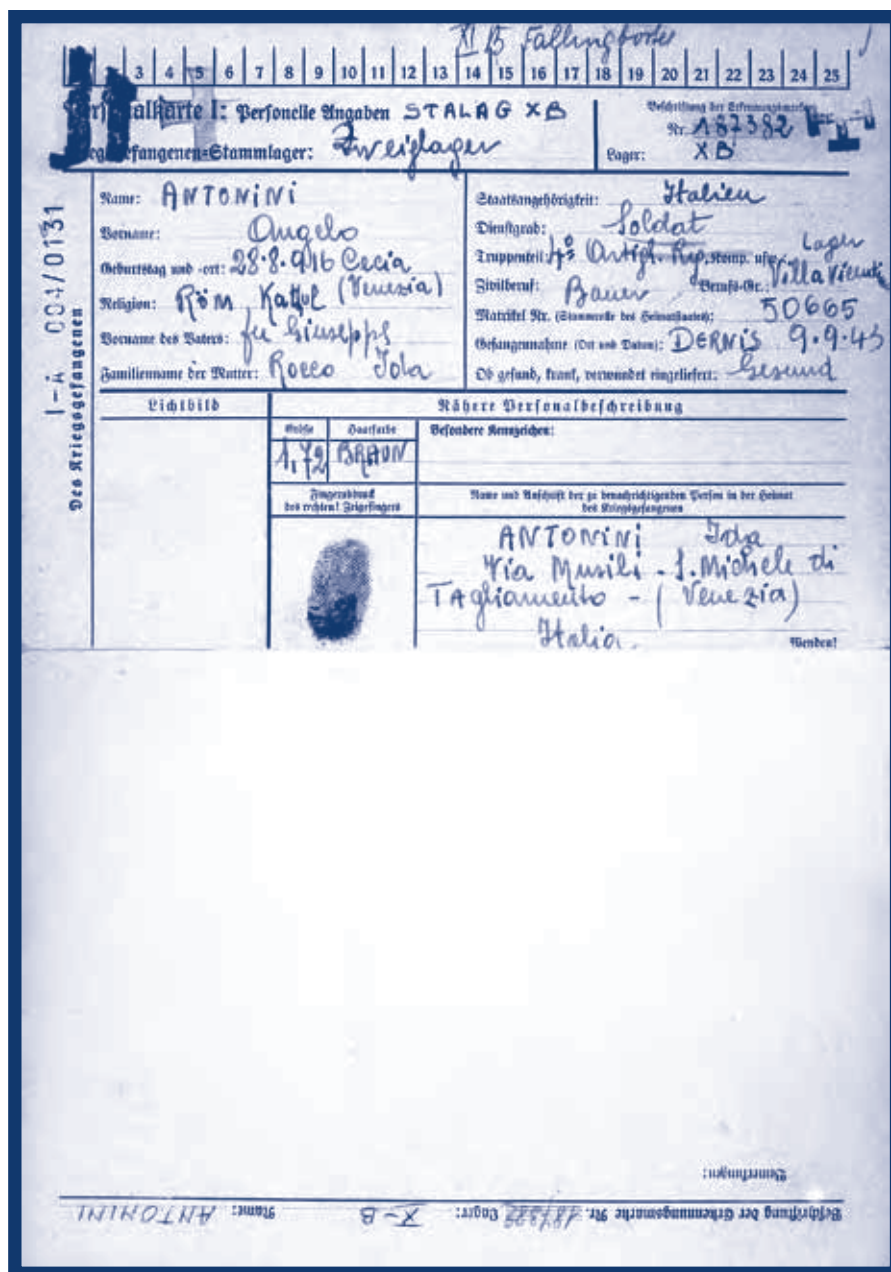 XI B Fallingbostel
3 4 5 6 7 8 9 10 11 12 13 14 15 16 17 18 19 20 21 22 23 24 25
Personalkarte I: Personelle Angaben STALAG XB
Kriegsgefangenen-Stammlager: Zweiglager
Beschriftung der Erkennungsmarke
Nr. 187382
Lager: XB
Des Kriegsgefangenen
I-A 004/0131
Name: ANTONiNi
Vorname: Angelo
Geburtstag und -ort: 28.8.916 Cecia
(Venezia)
Religion: Röm. Kathol
Vorname des Vaters: fu Giuseppe
Familienname der Mutter: Rocco Ida
Staatsangehörigkeit: Italien
Dienstgrad: Soldat
Truppenteil: 4° Artigl. Rgp. Komp. usw. Lager
Zivilberuf: Bauer Berufs-Gr.: Villa Vicenti
Matrikel Nr. (Stammrolle des Heimatstaates): 50665
Gefangennahme (Ort und Datum): DERNiS 9.9.43
Ob gesund, krank, verwundet eingeliefert: Gesund
Lichtbild
Nähere Personalbeschreibung
Größe Haarfarbe Besondere Kennzeichen:
1,72 BRAUN
Fingerabdruck
des rechten! Zeigefingers
Name und Anschrift der zu benachrichtigenden Person in der Heimat
des Kriegsgefangenen
ANTONiNi Ida
Via Musili - S. Michele di
TAgliamento - (Venezia)
Italia.
Wenden!
Bemerkungen:
Beschriftung der Erkennungsmarke Nr. 187382 Lager: X-B Name: ANTONINI